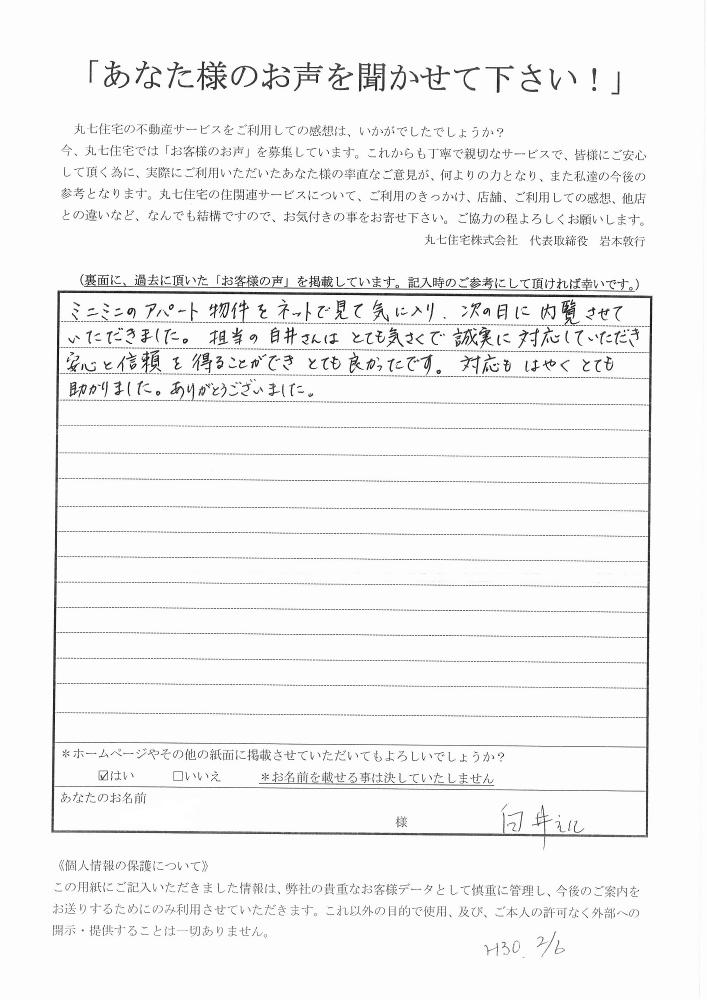 「あなた様のお声を聞かせて下さい！」
丸七住宅の不動産サービスをご利用しての感想は、いかがでしたでしょうか？
今、丸七住宅では「お客様のお声」を募集しています。これからも丁寧で親切なサービスで、皆様にご安心
して頂く為に、実際にご利用いただいたあなた様の率直なご意見が、何よりの力となり、また私達の今後の
参考となります。丸七住宅の住関連サービスについて、ご利用のきっかけ、店舗、ご利用しての感想、他店
との違いなど、なんでも結構ですので、お気付きの事をお寄せ下さい。ご協力の程よろしくお願いします。
丸七住宅株式会社　代表取締役　岩本敦行
（裏面に、過去に頂いた「お客様の声」を掲載しています。記入時のご参考にして頂ければ幸いです。）
ミニミニのアパート物件をネットで見て気に入り、次の日に内覧させて
いただきました。担当の臼井さんはとても気さくで誠実に対応していただき
安心と信頼を得ることができとても良かったです。対応もはやくとても
助かりました。ありがとうございました。
＊ホームページやその他の紙面に掲載させていただいてもよろしいでしょうか？
☑はい　□いいえ　＊お名前を載せる事は決していたしません
あなたのお名前
様
《個人情報の保護について》
この用紙にご記入いただきました情報は、弊社の貴重なお客様データとして慎重に管理し、今後のご案内を
お送りするためにのみ利用させていただきます。これ以外の目的で使用、及び、ご本人の許可なく外部への
開示・提供することは一切ありません。
H30. 2/6